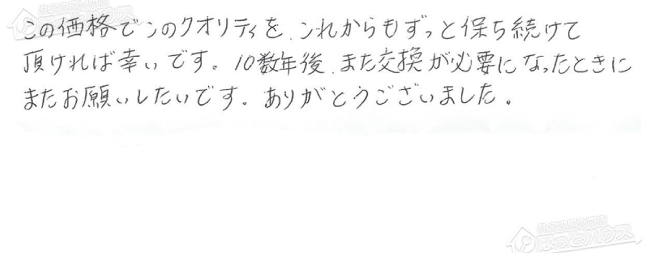 この価格でこのクオリティを、これからもずっと保ち続けて
頂ければ幸いです。10数年後、また交換が必要になったときに
またお願いしたいです。ありがとうございました。